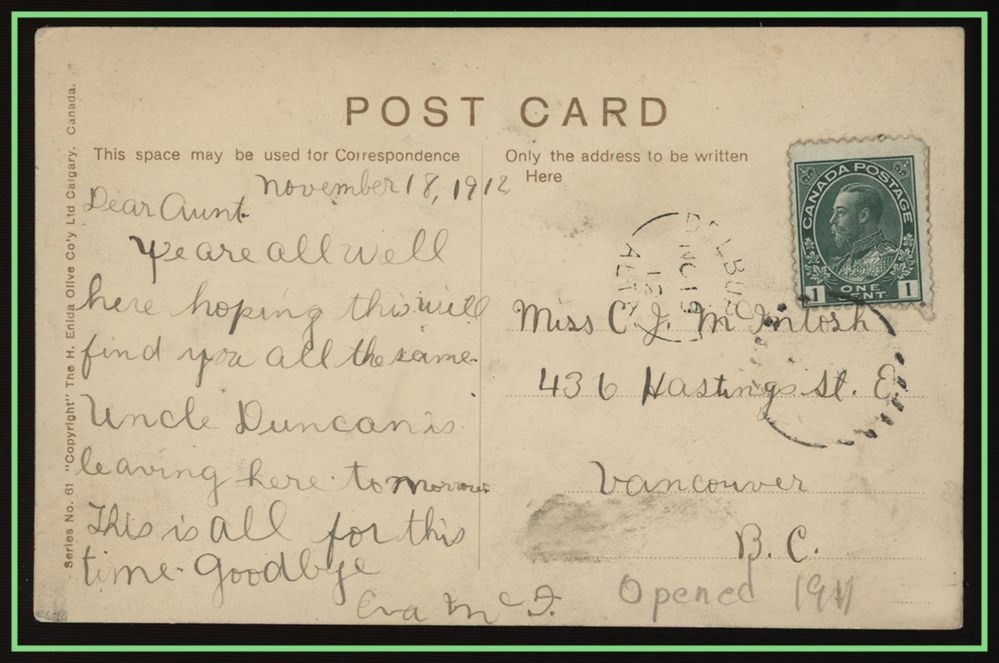 POST CARD
This space may be used for Correspondence
Only the address to be written
Here
Series No. 61 "Copyright" The H. Enida Olive Co'y Ltd Calgary, Canada.
November 18, 1912
Dear Aunt
We are all well
here hoping this will
find you all the same
Uncle Duncan is
leaving here tomorrow
This is all for this
time. Goodbye
Eva McI.
CANADA POSTAGE
1 ONE CENT 1
Miss C. J. McIntosh
436 Hastings St. E
Vancouver
B. C.
Opened